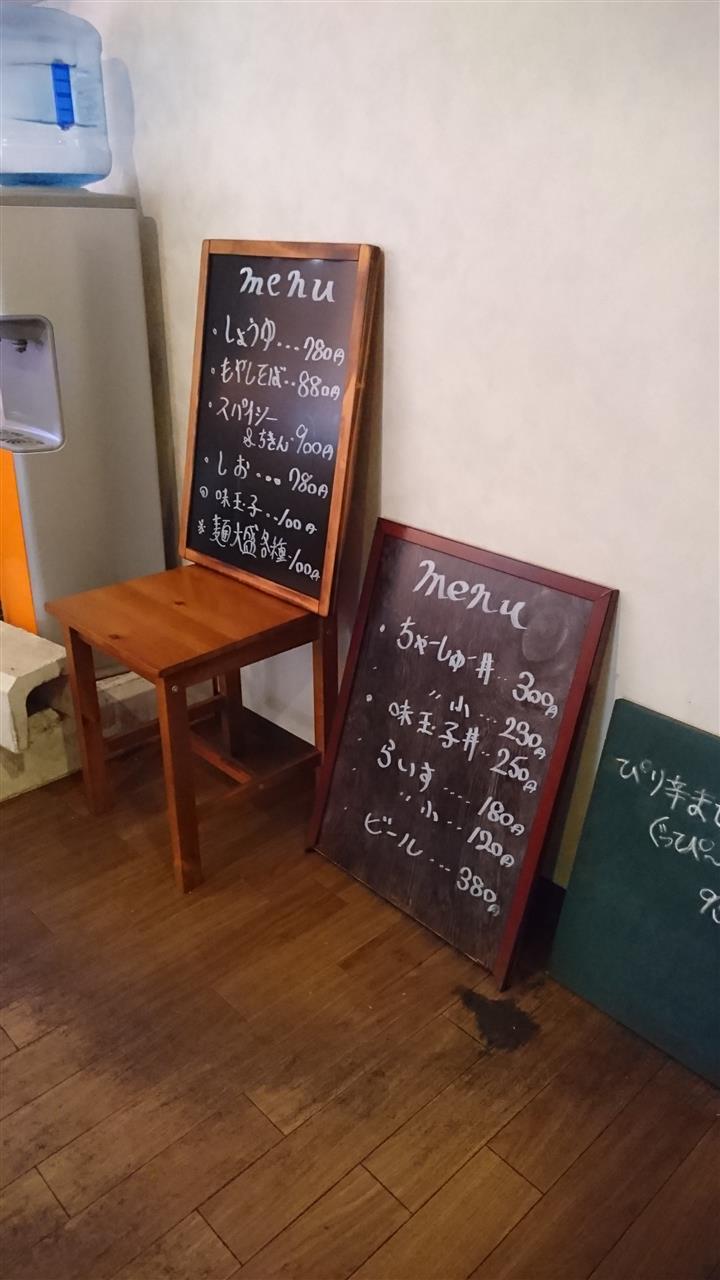 menu
・しょうゆ...780円
・もやしそば..880円
・スパイシー
&ちきん・900円
・しお....780円
◎味玉子...100円
※麺大盛各種・100円
menu
・ちゃーしゅー丼..300円
〃 小...230円
・味玉子丼..250円
・らいす....180円
〃 小...120円
・ビール...380円
ぴり辛
ぐっぴ〜